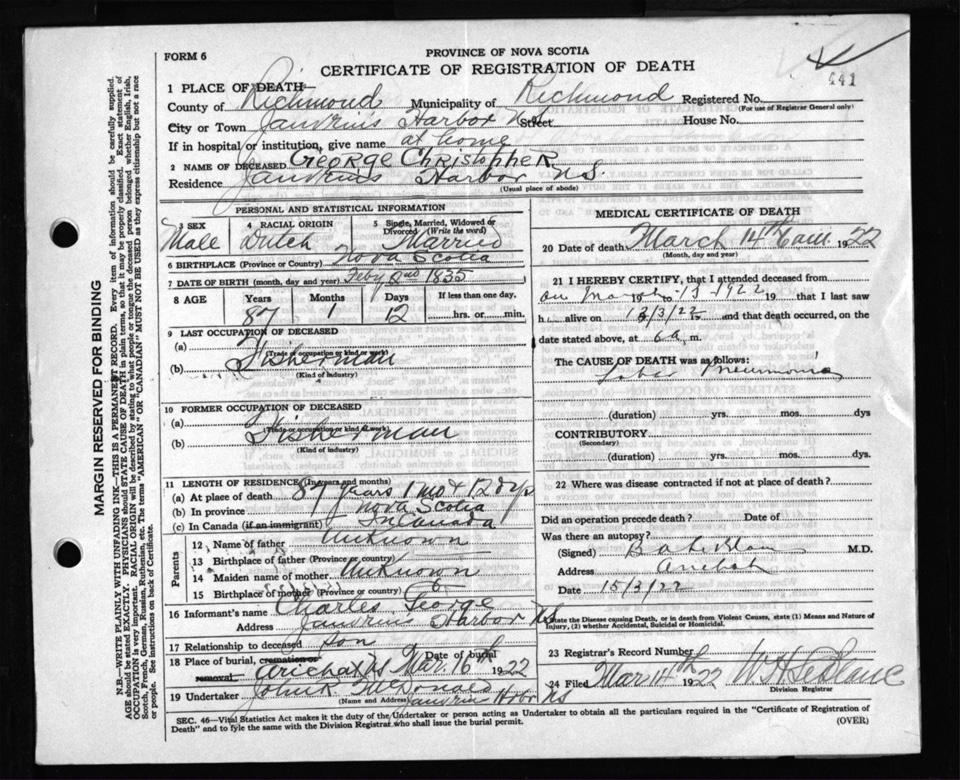 441
FORM 6
PROVINCE OF NOVA SCOTIA
CERTIFICATE OF REGISTRATION OF DEATH
1 PLACE OF DEATH
County of Richmond Municipality of Richmond Registered No.
(For use of Registrar General only)
City or Town Janvrins Harbor NS Street House No.
If in hospital or institution, give name at home
2 NAME OF DECEASED GEORGE CHRISTOPHER
Residence Janvrins Harbor N.S.
(Usual place of abode)
PERSONAL AND STATISTICAL INFORMATION
3 SEX Male
4 RACIAL ORIGIN Dutch
5 Single, Married, Widowed or Divorced (Write the word) Married
6 BIRTHPLACE (Province or Country) Nova Scotia
7 DATE OF BIRTH (month, day and year) Feby 2nd 1835
8 AGE Years Months Days If less than one day,
87 1 12 hrs. or min.
9 LAST OCCUPATION OF DECEASED
(a) (Trade or occupation or kind of work)
(b) Fisherman
(Kind of industry)
10 FORMER OCCUPATION OF DECEASED
(a) (Trade or occupation or kind of work)
(b) Fisherman
(Kind of industry)
11 LENGTH OF RESIDENCE (In years and months)
(a) At place of death 87 years 1 mo + 12 dys
(b) In province Nova Scotia
(c) In Canada (if an immigrant) In Canada
Parents
12 Name of father Unknown
13 Birthplace of father (Province or country)
14 Maiden name of mother Unknown
15 Birthplace of mother (Province or country)
16 Informant's name Charles George
Address Janvrins Harbor NS
17 Relationship to deceased son
18 Place of burial, cremation or removal Arichat NS Date of burial Mar. 16th 1922
19 Undertaker John
(Name and Address) Janvrin Harbor NS
MEDICAL CERTIFICATE OF DEATH
20 Date of death March 14th 6 am 1922
(Month, day and year)
21 I HEREBY CERTIFY, that I attended deceased from
on March 19 to 13 - 1922 19 that I last saw
h alive on 13/3/22 19 and that death occurred, on
date stated above, at 6 a. m.
The CAUSE OF DEATH was as follows:
Lobar Pneumonia
(duration) yrs. mos. dys
CONTRIBUTORY
(Secondary)
(duration) yrs. mos. dys.
22 Where was disease contracted if not at place of death?
Did an operation precede death? Date of
Was there an autopsy?
(Signed) M.D.
Address Arichat
Date 15/3/22
State the Disease causing Death, or in death from Violent Causes, state (1) Means and Nature of Injury, (2) whether Accidental, Suicidal or Homicidal.
23 Registrar's Record Number
24 Filed Mar 14th 1922 W H LeBlanc
Division Registrar
SEC. 46—Vital Statistics Act makes it the duty of the Undertaker or person acting as Undertaker to obtain all the particulars required in the "Certificate of Registration of
Death" and to fyle the same with the Division Registrar who shall issue the burial permit. (OVER)
MARGIN RESERVED FOR BINDING
N.B.—WRITE PLAINLY WITH UNFADING INK—THIS IS A PERMANENT RECORD. Every item of information should be carefully supplied.
AGE should be stated EXACTLY. PHYSICIANS should STATE CAUSE OF DEATH in plain terms, so that it may be properly classified. Exact statement of
OCCUPATION is very important. RACIAL ORIGIN will be described by stating to what people or tongue the deceased person belonged whether English, Irish,
Scotch, French, German, Russian, Ruthenian, etc. The terms "AMERICAN" OR "CANADIAN" MUST NOT BE USED as they express citizenship but not a race
or people. See instructions on back of Certificate.